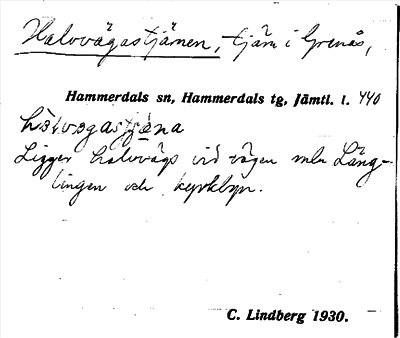 Halvvägastjärnen, tjärn i Grenås,
Hammerdals sn, Hammerdals tg, Jämtl. l. 440
Ligger halvvägs vid vägen mln Lång-
lingen och kyrkbyn.
C. Lindberg 1930.